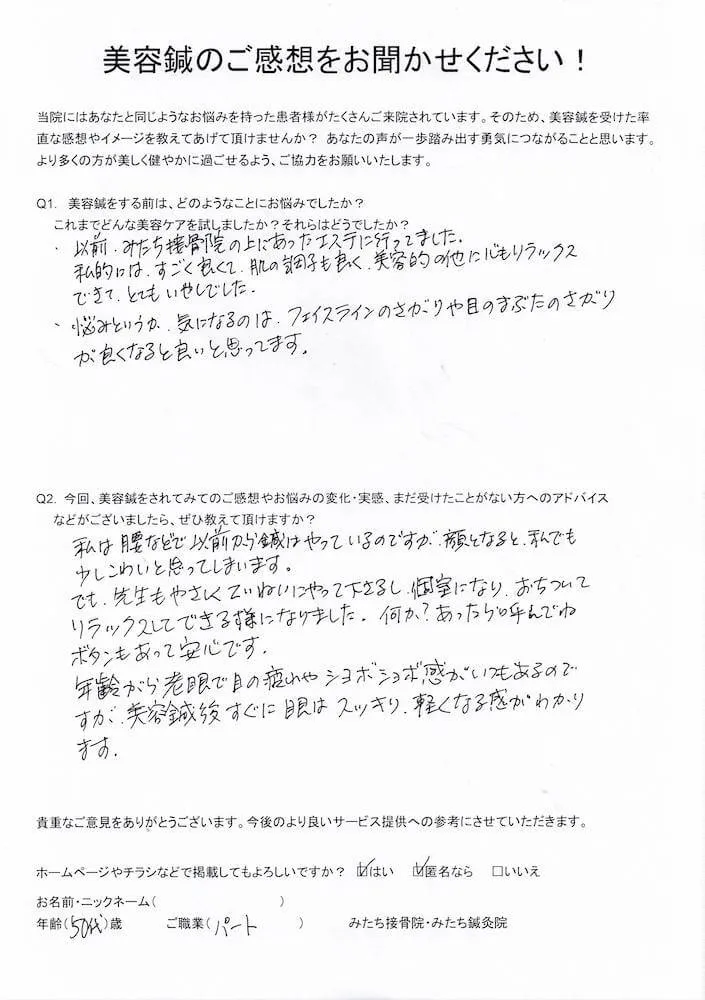 美容鍼のご感想をお聞かせください！
当院にはあなたと同じようなお悩みを持った患者様がたくさんご来院されています。そのため、美容鍼を受けた率
直な感想やイメージを教えてあげて頂けませんか？ あなたの声が一歩踏み出す勇気につながることと思います。
より多くの方が美しく健やかに過ごせるよう、ご協力をお願いいたします。
Q1. 美容鍼をする前は、どのようなことにお悩みでしたか？
これまでどんな美容ケアを試しましたか？それらはどうでしたか？
・以前、みたち接骨院の上にあったエステに行ってました。
私的には、すごく良くて、肌の調子も良く、美容的の他に心もリラックス
できて、とてもいやしでした。
・悩みというか、気になるのは、フェイスラインのさがりや目のまぶたのさがり
が良くなると良いと思ってます。
Q2. 今回、美容鍼をされてみてのご感想やお悩みの変化・実感、まだ受けたことがない方へのアドバイス
などがございましたら、ぜひ教えて頂けますか？
私は腰などで以前から鍼はやっているのですが、顔となると、私でも
少しこわいと思ってしまいます。
でも、先生もやさしくていねいにやって下さるし、個室になり、おちついて
リラックスしてできる様になりました。何か？あったら呼んでね
ボタンもあって安心です。
年齢がら老眼で目の疲れやショボショボ感がいつもあるので
すが、美容鍼後すぐに眼はスッキリ、軽くなる感がわかり
ます。
貴重なご意見をありがとうございます。今後のより良いサービス提供への参考にさせていただきます。
ホームページやチラシなどで掲載してもよろしいですか？ ☑はい ☑匿名なら □いいえ
お名前・ニックネーム（ ）
年齢（50代）歳 ご職業（パート ） みたち接骨院・みたち鍼灸院